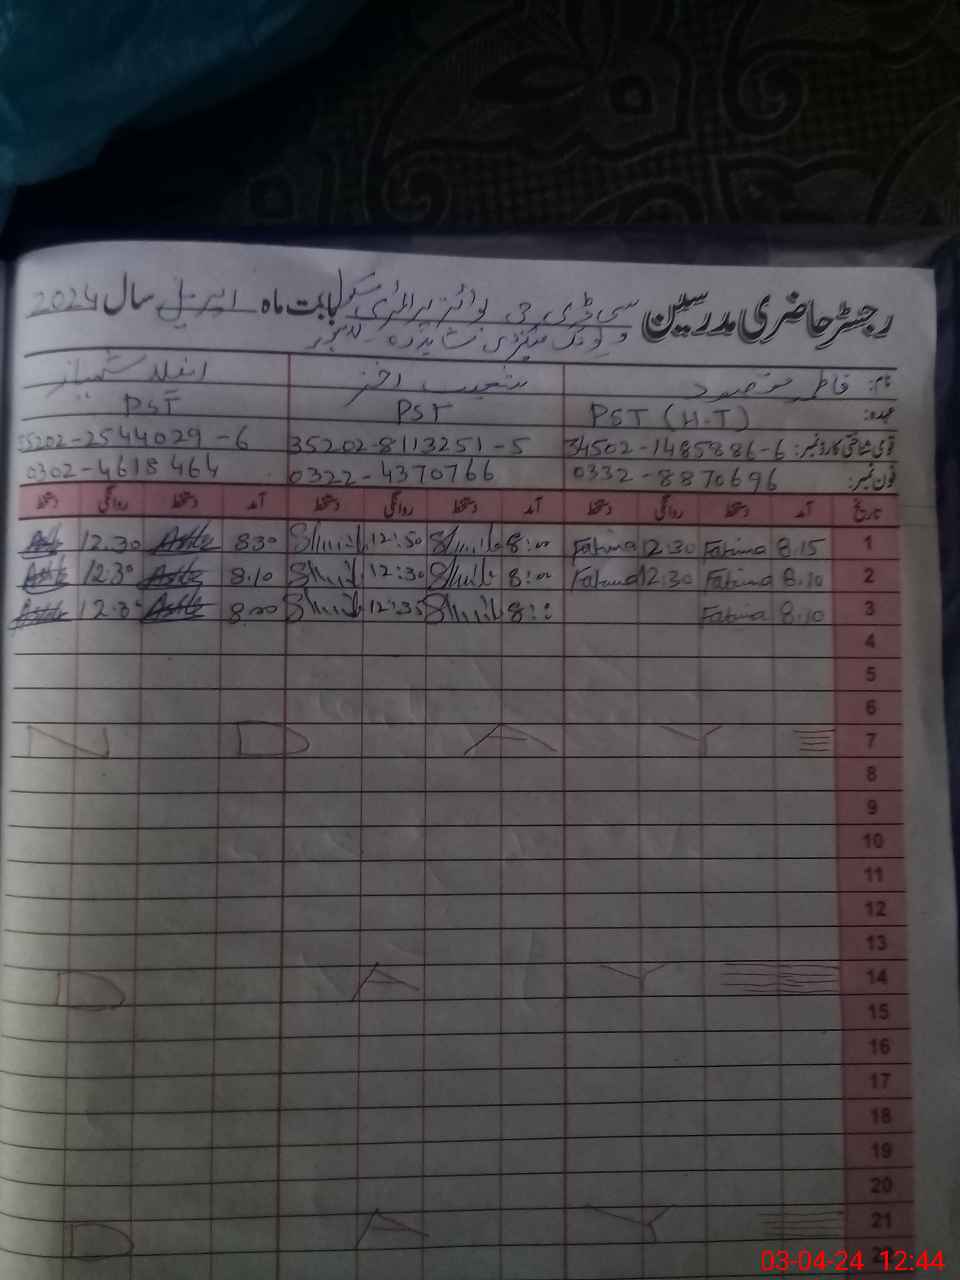 رجسٹر حاضری مدرسین سی ڈی جی بوائز پرائمری سکول بابت ماہ اپریل سال 2024
نام: فاطمہ مقصود شعیب اختر شہباز
عہدہ: PST (H.T) PST PST
قومی شناختی کارڈ نمبر: 34502-1485886-6 35202-8113251-5 35202-2544029-6
فون نمبر: 0332-8870696 0322-4370766 0302-4618464
تاریخ آمد دستخط روانگی دستخط آمد دستخط روانگی دستخط آمد دستخط روانگی دستخط
1 8.15 Fatima 12.30 Fatima 8:00 12:30 8:30 12.30
2 8.10 Fatima 12.30 Fatima 8:00 12:30 8.10 12:30
3 8.10 Fatima 8:00 12:35 8.00 12.30
4
5
6
7 N D A Y
8
9
10
11
12
13
14 D A Y
15
16
17
18
19
20
21 D A Y
03-04-24 12:44